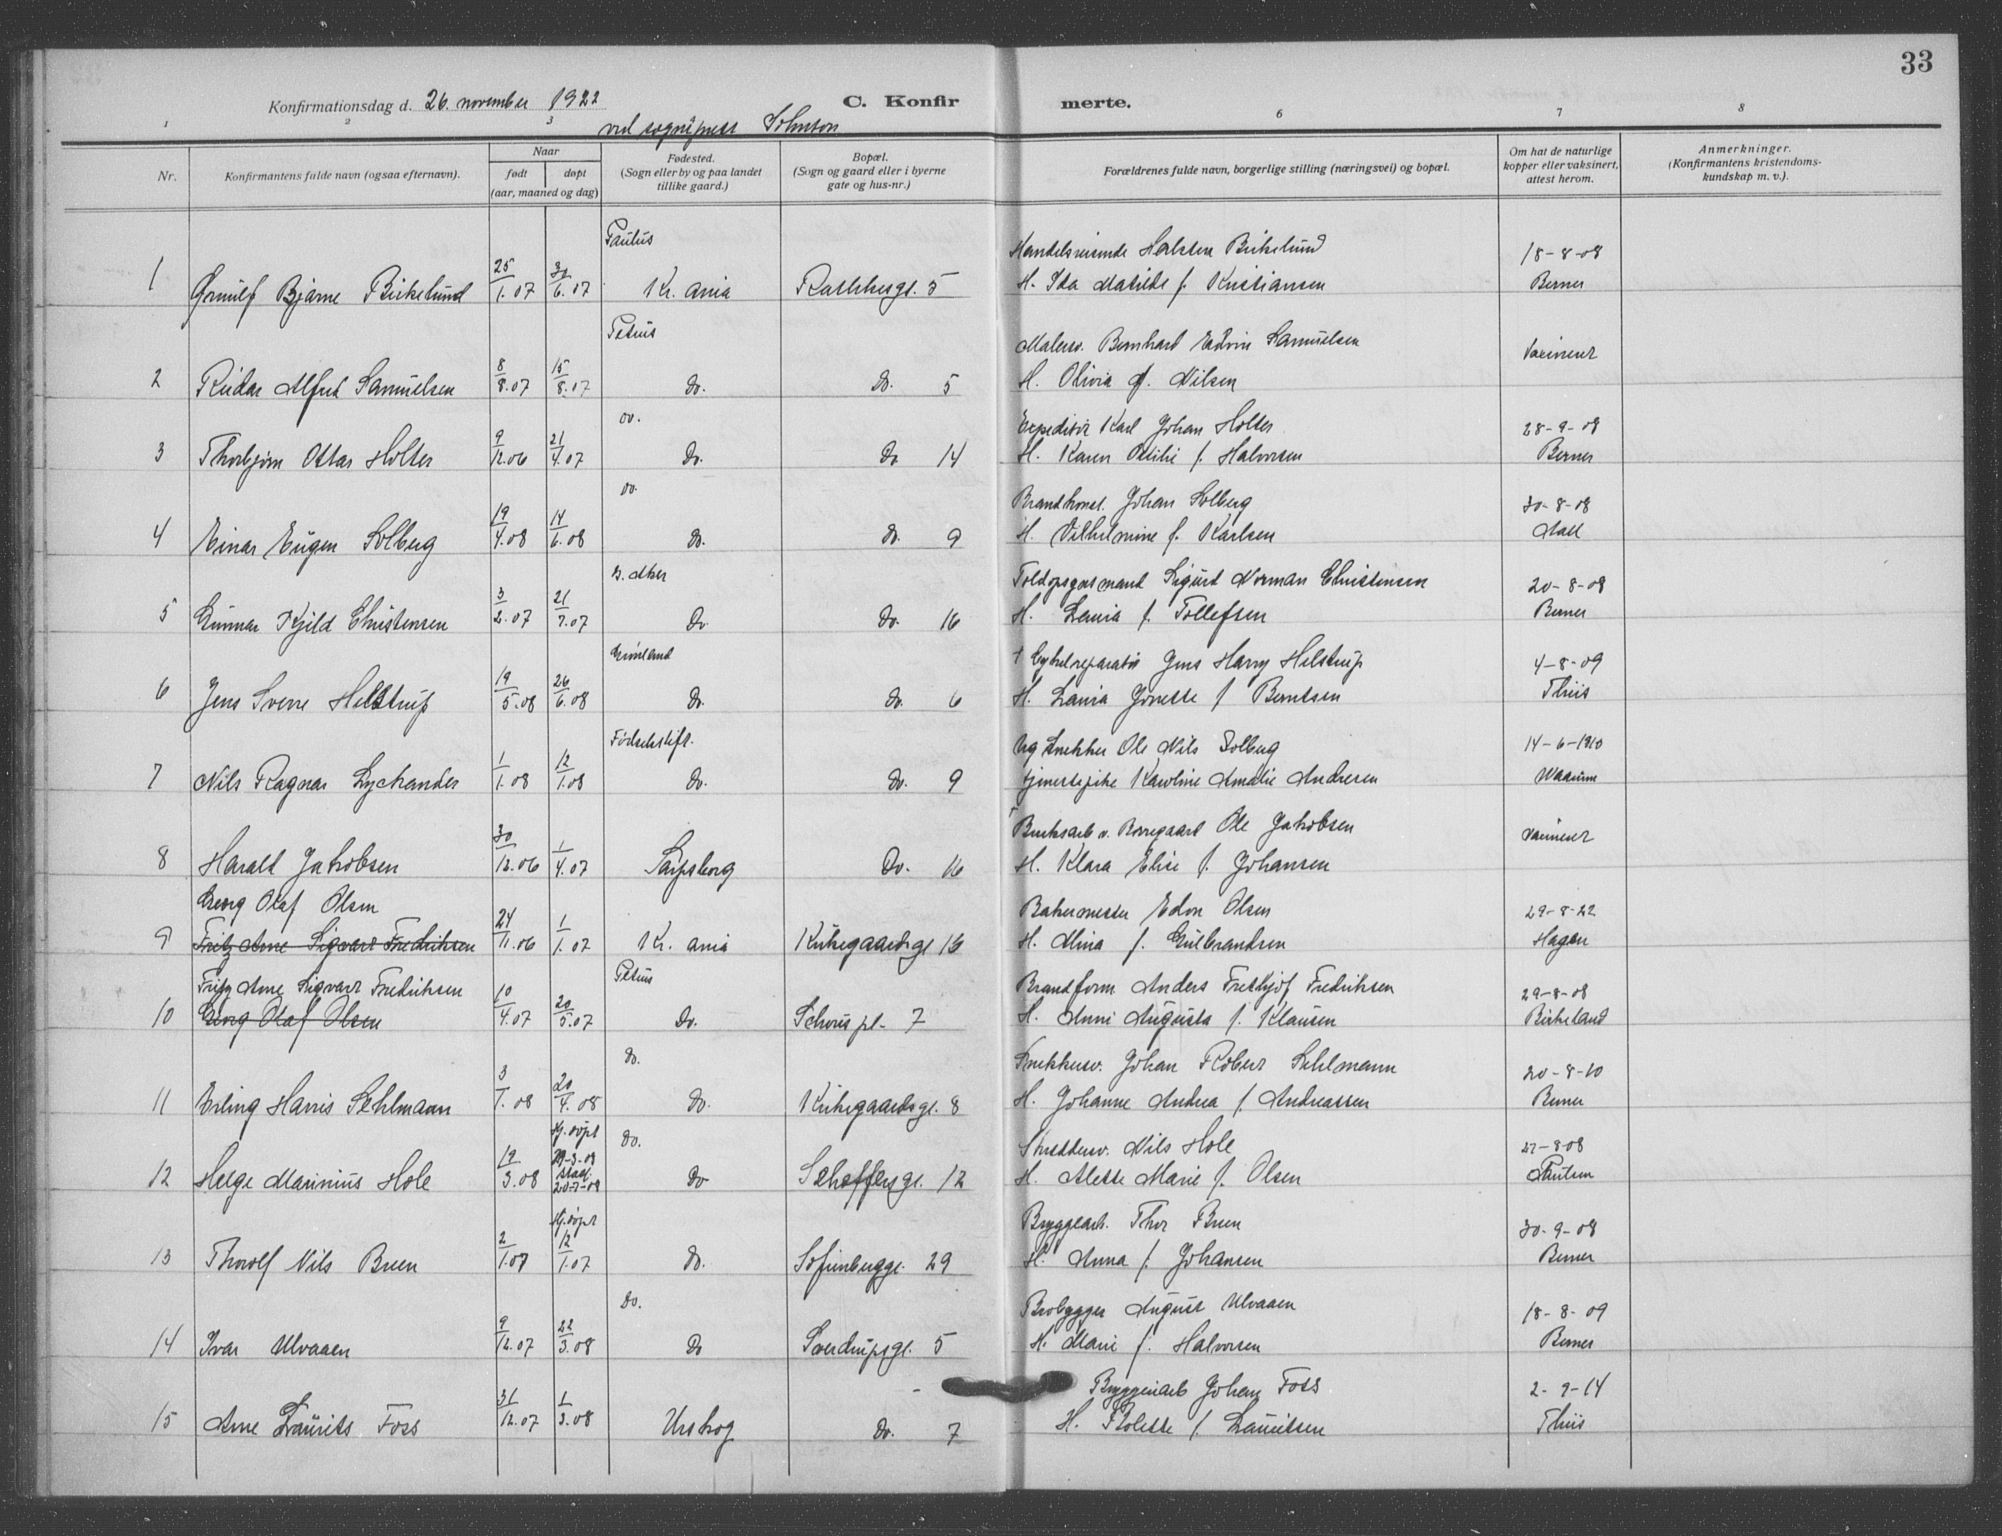 33
Konfirmationsdag d. 26. november 1922 C. Konfirmerte.
ved sogneprest Johnson
1 2 3 6 7 8
Nr. Konfirmantens fulde navn (ogsaa efternavn). Naar født døpt (aar, maaned og dag) Fødested. (Sogn eller by og paa landet tillike gaard.) Bopæl. (Sogn og gaard eller i byerne gate og hus-nr.) Forældrenes fulde navn, borgerlige stilling (næringsvei) og bopæl. Om hat de naturlige kopper eller vaksinert, attest herom. Anmerkninger. (Konfirmantens kristendomskundskap m. v.).
Paulus Handelsreisende Halsten Birkelund 18-8-08
1 Ørnulf Bjarne Birkelund 25/1.07 30/6.07 Kr.ania Rathkesgt. 5 H. Ida Matilde f. Kristiansen Berner
Petrus Malersv. Bernhard Edvin Samuelsen Vaxinert
2 Reidar Alfred Samuelsen 8/8.07 15/8.07 Do. Do. 5 H. Olivia f. Nilsen
Do. Expeditør Karl Johan Holter 28-9-08
3 Thorbjørn Ottar Holter 9/12.06 21/4.07 Do. Do 14 H. Karen Otilie f. Halvorsen Berner
Do. Brandkonst. Johan Solberg 30-8-08
4 Einar Eugen Solberg 19/4.08 14/6.08 Do. Do. 9 H. Vilhelmine f. Karlsen Aall
V. Aker Toldopsynsmand Sigurd Norman Christensen 20-8-08
5 Gunnar Kjeld Christensen 3/2.07 21/7.07 Do Do. 16 H. Laura f. Tollefsen Berner
Grønland † Cykelreparatør Jens Harry Helstrup 4-8-09
6 Jens Sverre Helstrup 19/5.08 26/6.08 Do. Do. 6 H. Laura Jonette f Berntsen Thiis
Fødselsstift. Ug Snekker Ole Nils Solberg 14-6-1910
7 Nils Ragnar Lychander 1/1.08 12/1.08 Do. Do. 9 tjenestepike Karoline Amalie Andresen Waarum
† Bruksarb v. Borregaard Ole Jakobsen Vaxinert
8 Harald Jakobsen 30/12.06 1/4.07 Sarpsborg Do. 16 H. Klara Elise f. Johansen
Georg Olaf Olsen Bakermester Edv. Olsen 29-8-22
9 Fritz Arne Sigvart Fredriksen 24/11.06 1/1.07 Kr.ania Kirkegaardsgt 16 H. Mina f. Gulbrandsen Hagen
Fritz Arne Sigvart Fredriksen Petrus Brandform Anders Fredthjof Fredriksen 29-8-08
10 Georg Olaf Olsen 10/4.07 20/5.07 Do. Schous pl. 7 H. Anni Augusta f. Klausen Birkeland
Do. Snekkersv. Johan Robert Sehlmann 20-8-10
11 Erling Harris Sehlmann 3/1.08 20/4.08 Do. Kirkegaardsgt. 8 H. Johanne Andrea f. Andreassen Berner
Hj. døpt Do. Skreddersv. Nils Hole 27-8-08
12 Helge Marinius Hole 19/3.08 stad. Do Schoffersgt. 12 H. Alette Marie f. Olsen Paulsen
Hj. døpt Bryggearb. Thor Breen 30-9-08
13 Thorolf Nils Breen 2/1.07 12/1.07 Do. Sofienberggt. 29 H. Anna f. Johansen Berner
Do. Brobygger August Ulvaaen 18-8-09
14 Ivar Ulvaaen 9/12.07 22/3.08 Do Sverdrupsgt. 5 H. Marie f. Halvorsen Berner
Bryggeriarb Johan Foss 2-9-14
15 Arne Laurits Foss 31/12.07 1/3.08 Urskog Do. 7 H. Rolette f. Lauritsen Thiis